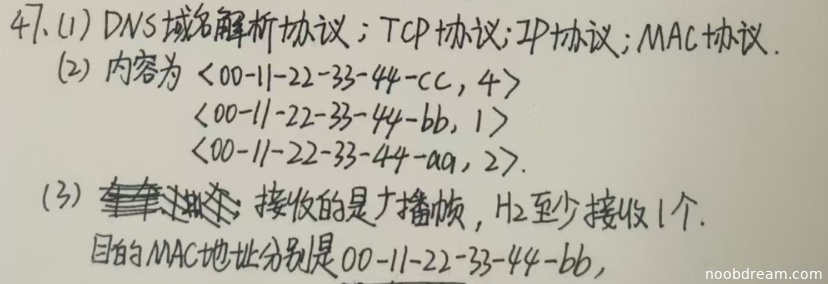 47.(1) DNS域名解析协议；TCP协议；IP协议；MAC协议.
(2) 内容为 <00-11-22-33-44-cc, 4>
<00-11-22-33-44-bb, 1>
<00-11-22-33-44-aa, 2>.
(3) 接收的是广播帧，H2至少接收1个.
目的MAC地址分别是00-11-22-33-44-bb,
noobdream.com